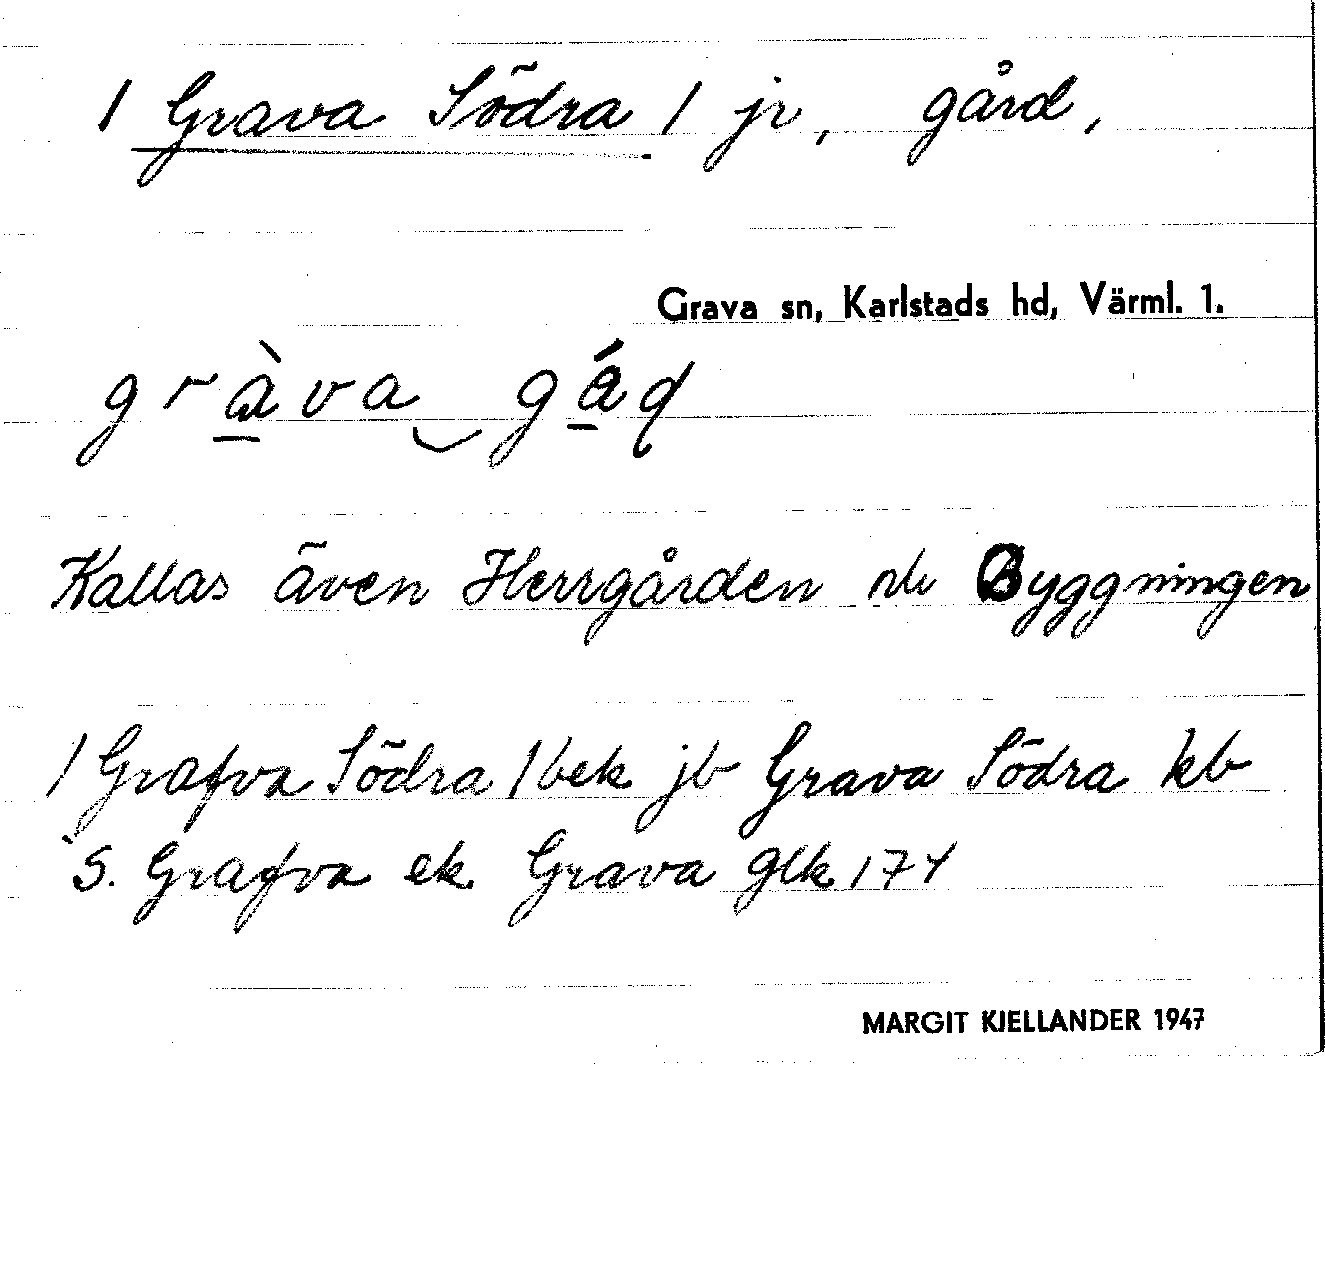 / Grava Södra / jr, gård,
Grava sn, Karlstads hd, Värml. 1.
gràva‿gáɖ
Kallas även Herrgården el. Byggningen
/ Grafva Södra / bek jb Grava Södra kb
S. Grafva ek. Grava glk 174
MARGIT KJELLANDER 1947